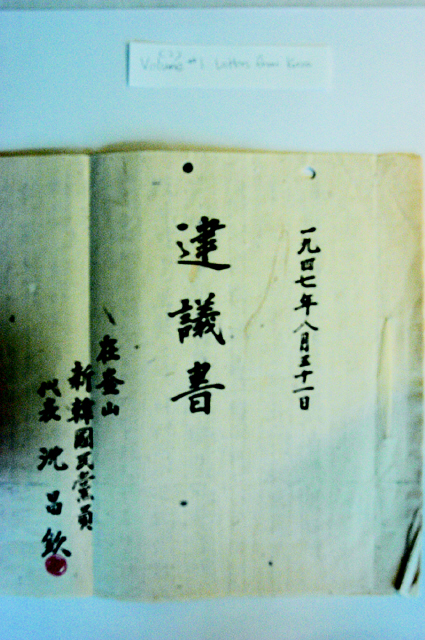 Volume #1 Letters from Korea
一九四七年八月三十一日
建議書
在釜山
新韓國民黨員
代表 沈昌欽